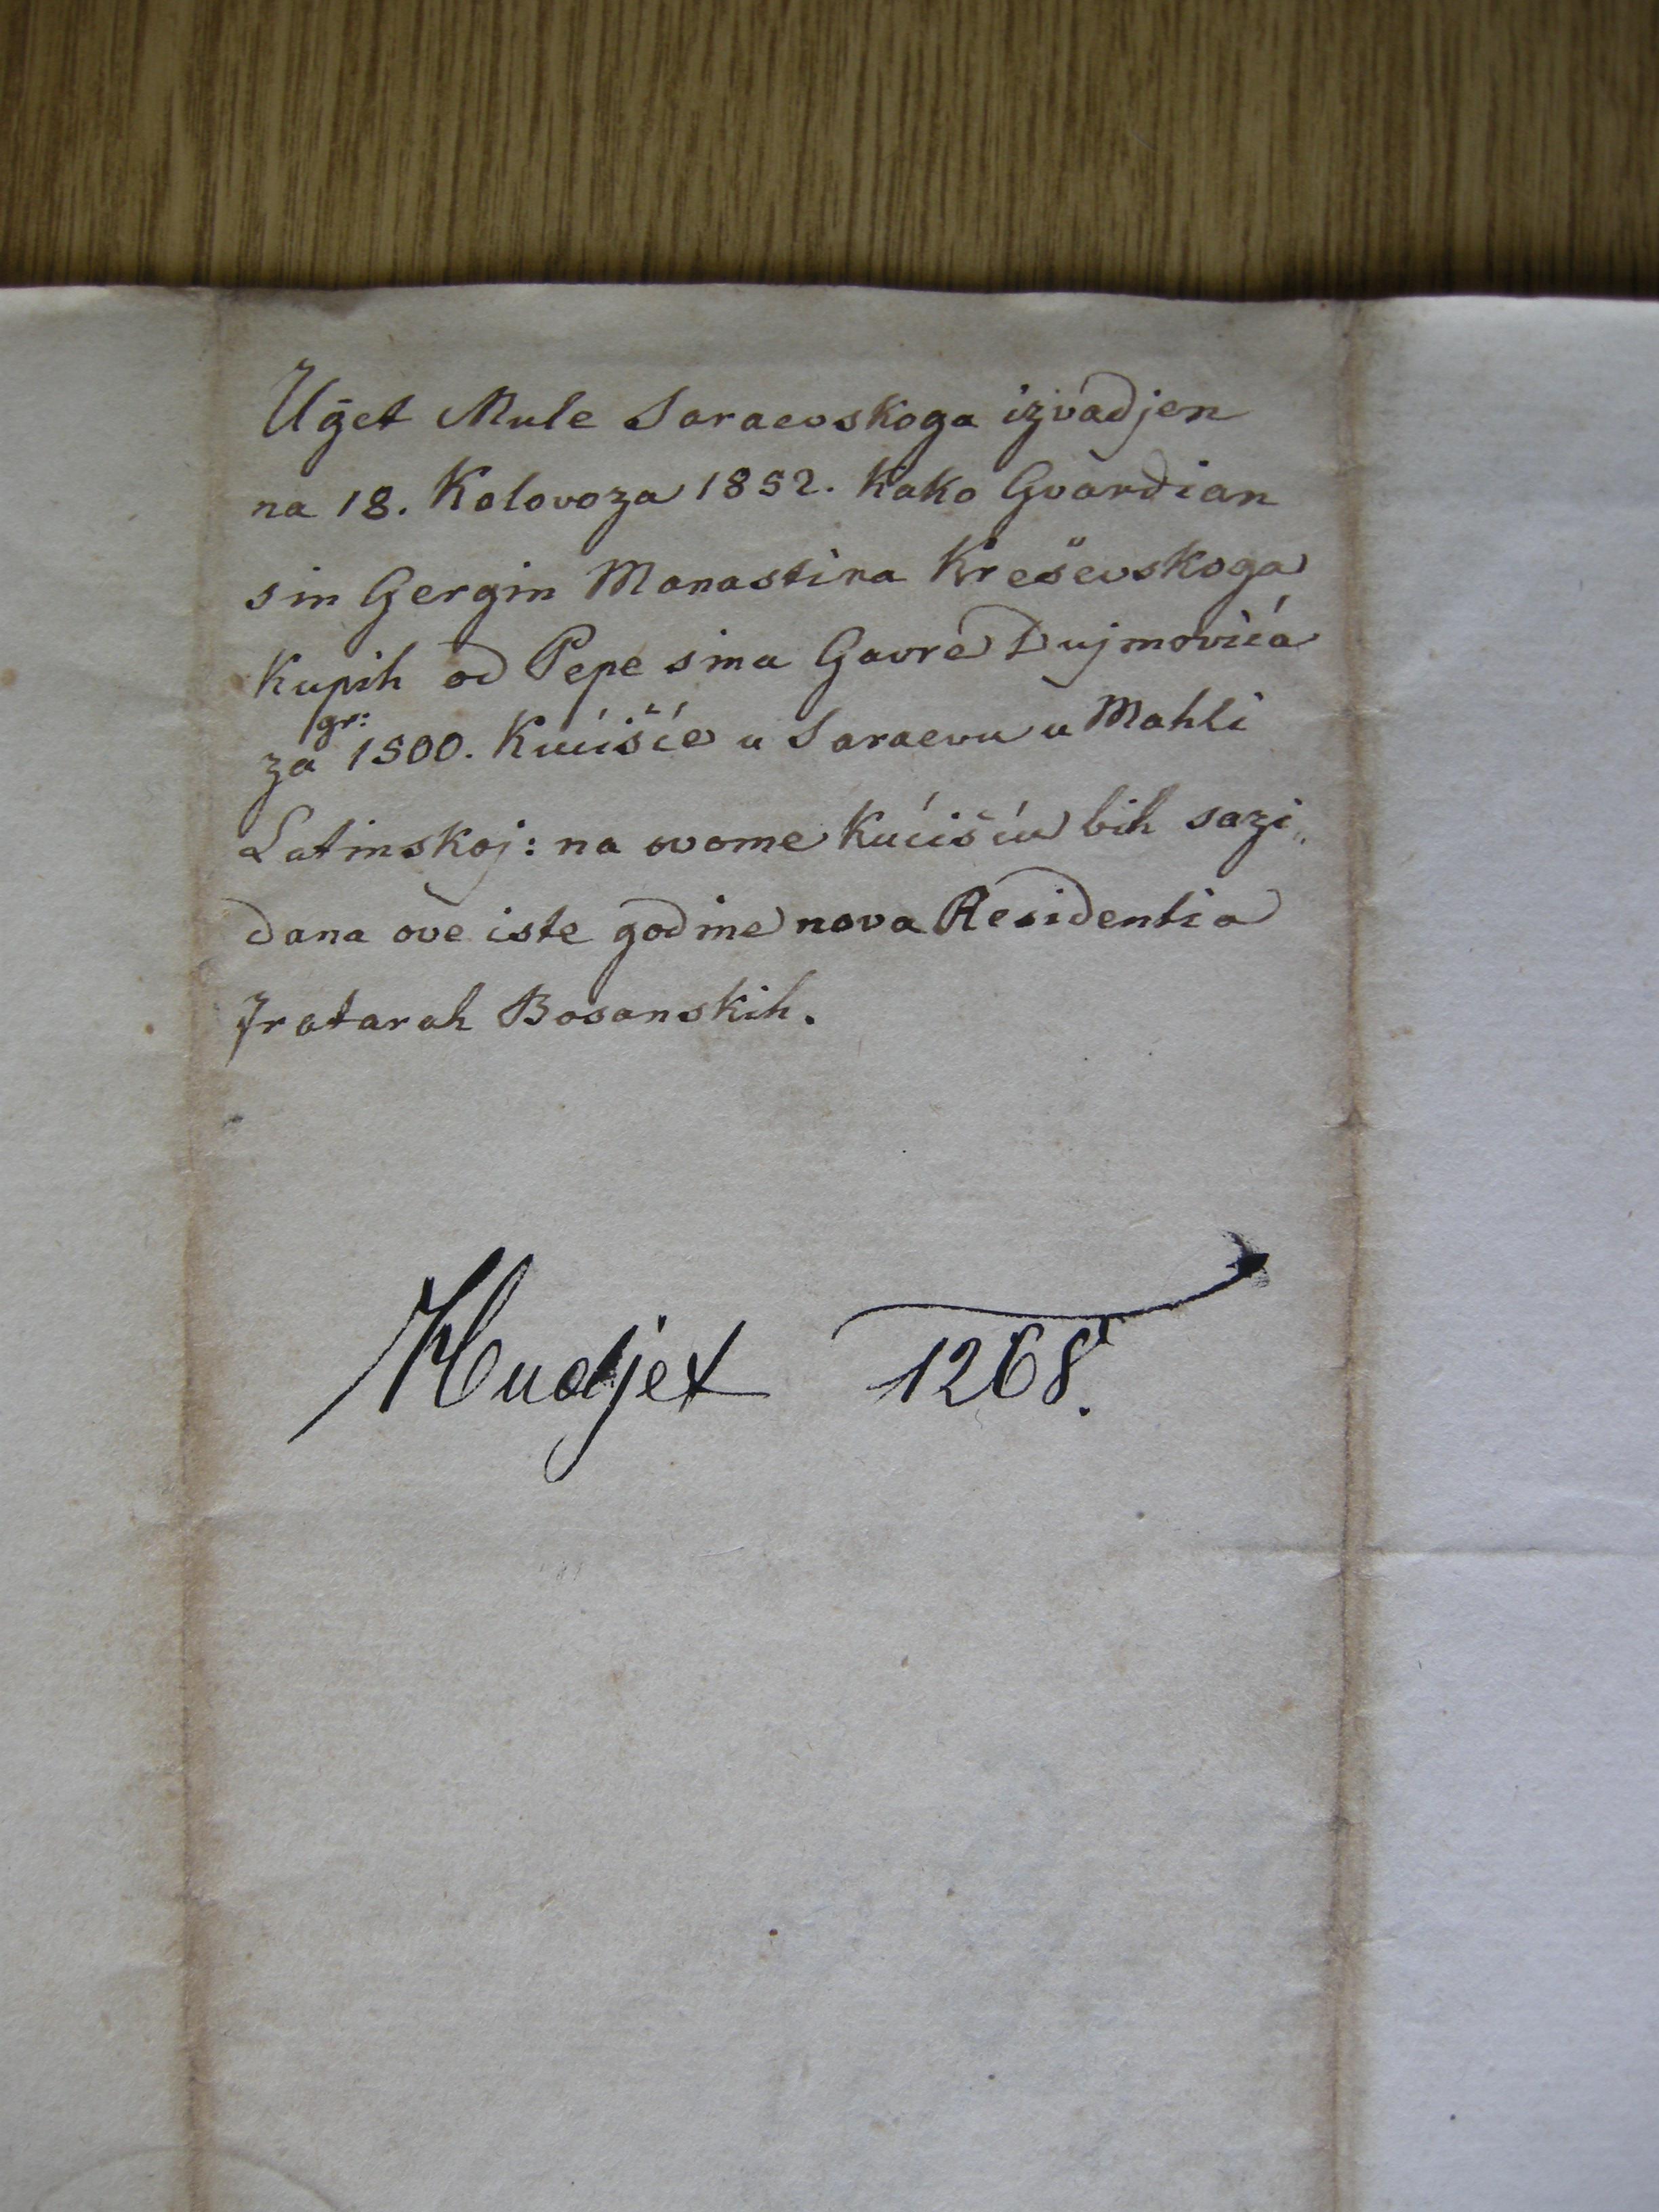 Uğet Mule Saraevskoga izvadjen
na 18. Kolovoza 1852. kako Gvardian
sin Gergin Manastira Kreševskoga
Kupih od Pepe sina Gavre Dujmovića
za gr: 1500. Kućišće u Saraevu u Mahli
Latinskoj: na ovome kućišću bih sazi„
dana ove iste godine nova Residentia
Fratarah Bosanskih.
Hudjet 1268.